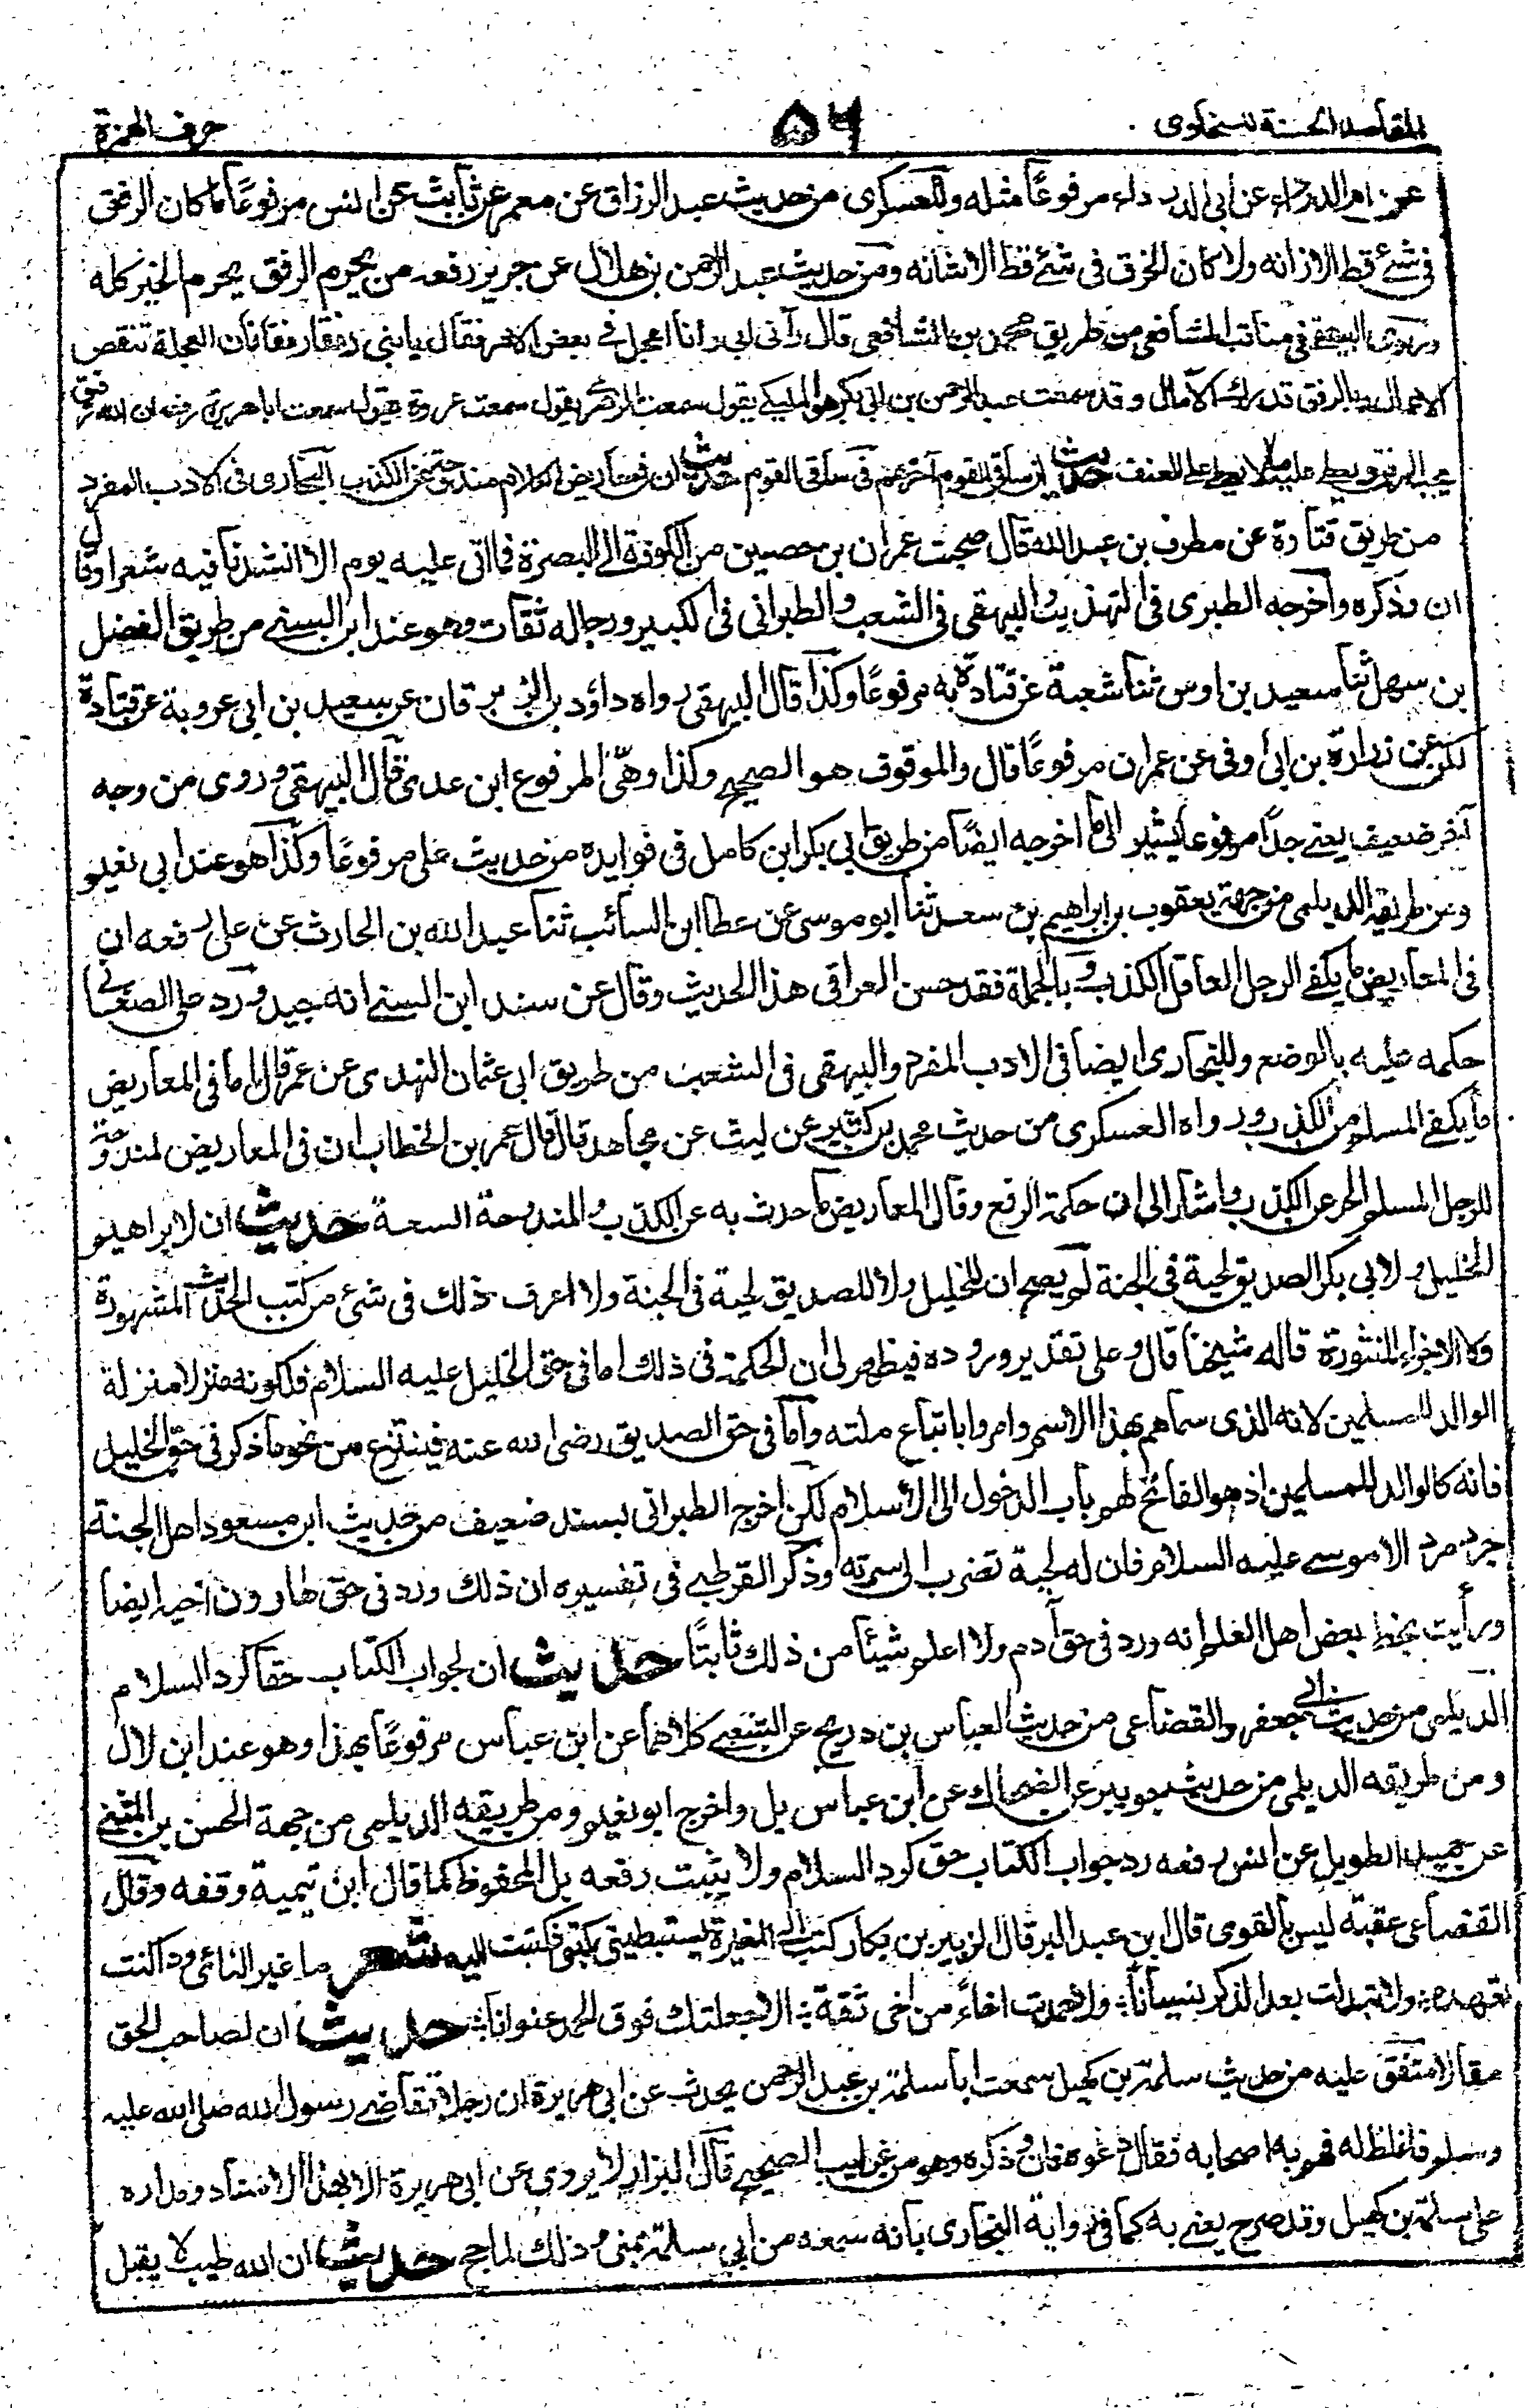 المقاصد الحسنة للسخاوى
٥٦
حرف الهمزة
عن ام الدرداء عن ابى الدرداء مرفوعًا مثله وللعسكرى من حديث عبد الرزاق عن معمر عن ثابت عن انس مرفوعًا ما كان الرفق
فى شئ قط الا زانه ولا كان الخرق فى شئ قط الا شانه ومن حديث عبد الرحمن بن هلال عن جرير رفعه من يحرم الرفق يحرم الخير كله
وروى البيهقى فى مناقب الشافعى من طريق محمد بن الشافعى قال رآنى ابى وانا اعجل فى بعض الامر فقال يا بنى رفقا رفقا فان العجلة تنقص
الاعمال وبالرفق تدرك الآمال وقد سمعت عبد الرحمن بن ابى بكر هو المليكى يقول سمعت الزهرى يقول سمعت عروة يقول سمعت ابا هريرة رفعه ان الله رفيق
يحب الرفق ويعطى عليه ما لا يعطى على العنف حديث ان ساقى القوم آخرهم فى ساقى القوم حديث ان فى معاريض الكلام مندوحة عن الكذب البخارى فى الادب المفرد
من طريق قتادة عن مطرف بن عبد الله قال صحبت عمران بن حصين من الكوفة الى البصرة فما اتى عليه يوم الا انشدنا فيه شعرا وقال
ان وذكره واخرجه الطبرى فى التهذيب والبيهقى فى الشعب والطبرانى فى الكبير ورجاله ثقات وهو عند ابن السنى من طريق الفضل
بن سهل ثنا سعيد بن اوس ثنا شعبة عن قتادة به مرفوعًا وكذا قال البيهقى رواه داود بن الزبرقان عن سعيد بن ابى عروبة عن قتادة
لكن عن زرارة بن ابى اوفى عن عمران مرفوعًا قال والموقوف هو الصحيح وكذا وهّى المرفوع ابن عدى قال البيهقى وروى من وجه
آخر ضعيف يعنى جدًا مرفوعا يشير الى ما اخرجه ايضًا من طريق ابى بكر ابن كامل فى فوايده من حديث على مرفوعًا وكذا هو عند ابى نعيم
ومن طريقه الديلمى من جهة يعقوب بن ابراهيم بن سعد ثنا ابو موسى عن عطا ابن السائب ثنا عبد الله بن الحارث عن على رفعه ان
فى المعاريض ما يكفى الرجل العاقل الكذب وبالجملة فقد حسن العراقى هذا الحديث وقال عن سند ابن السنى انه جيد ورد على الصغانى
حكمه عليه بالوضع وللبخارى ايضا فى الادب المفرد والبيهقى فى الشعب من طريق ابى عثمان النهدى عن عمر قال اما فى المعاريض
ما يكفى المسلم من الكذب ورواه العسكرى من حديث محمد بن كثير عن ليث عن مجاهد قال قال عمر بن الخطاب ان فى المعاريض لمندوحة
للرجل المسلم الحر عن الكذب واشار الى ان حكمة الرفع وقال المعاريض ما حدث به عن الكذب والمندوحة السعة حديث ان لابراهيم
الخليل ولابى بكر الصديق لحية فى الجنة لم يصح ان للخليل ولا للصديق لحية فى الجنة ولا اعرف ذلك فى شئ من كتب الحديث المشهورة
ولا الاجزاء المنثورة قاله شيخنا قال وعلى تقدير وروده فيظهر لى ان الحكمة فى ذلك اما فى حق الخليل عليه السلام فلكونه منزلا منزلة
الوالد للمسلمين لانه الذى سماهم بهذا الاسم وامروا باتباع ملته واما فى حق الصديق رضى الله عنه فينتزع من نحو ما ذكر فى حق الخليل
فانه كالوالد للمسلمين اذ هو الفاتح لهم باب الدخول الى الاسلام لكن اخرج الطبرانى بسند ضعيف من حديث ابن مسعود اهل الجنة
جرد مرد الا موسى عليه السلام فان له لحية تضرب الى سرته وذكر القرطبى فى تفسيره ان ذلك ورد فى حق هارون اخيه ايضا
ورأيت بخط بعض اهل العلم انه ورد فى حق آدم ولا اعلم شيئًا من ذلك ثابتًا حديث ان لجواب الكتاب حقا كرد السلام
الديلمى من حديث ابى جعفر والقضاعى من حديث العباس بن ذريح عن الشعبى كلاهما عن ابن عباس مرفوعًا بهذا وهو عند ابن لال
ومن طريقه الديلمى من حديث جويبر عن الضحاك عن ابن عباس بل واخرج ابو نعيم ومن طريقه الديلمى من جهة الحسن بن المثنى
عن حميد الطويل عن انس رفعه رد جواب الكتاب حق كرد السلام ولا يثبت رفعه بل المحفوظ كما قال ابن تيمية وقفه وقال
القضاعى عقبة ليس بالقوى قال ابن عبد البر قال الزبير بن بكار كتب الى المغيرة يستبطينى بكتبى فكتبت اليه شعر ما غير النائى ودا كنت
تعهده ولا تبدلت بعد الذكر نسيانا ولا حمدت اخاء من اخى ثقة الا جعلتك فوق الحمد عنوانا حديث ان لصاحب الحق
مقالا متفق عليه من حديث سلمة بن كهيل سمعت ابا سلمة بن عبد الرحمن يحدث عن ابى هريرة ان رجلا تقاضى رسول الله صلى الله عليه
وسلم فاغلظ له فهم به اصحابه فقال دعوه فان وذكره وهو من غرايب الصحيح قال البزار لا يروى عن ابى هريرة الا بهذا الاسناد ومداره
على سلمة بن كهيل وقد صرح يعنى به كما فى رواية البخارى بانه سمعه من ابى سلمة بمنى وذلك لما حج حديث ان الله طيب لا يقبل